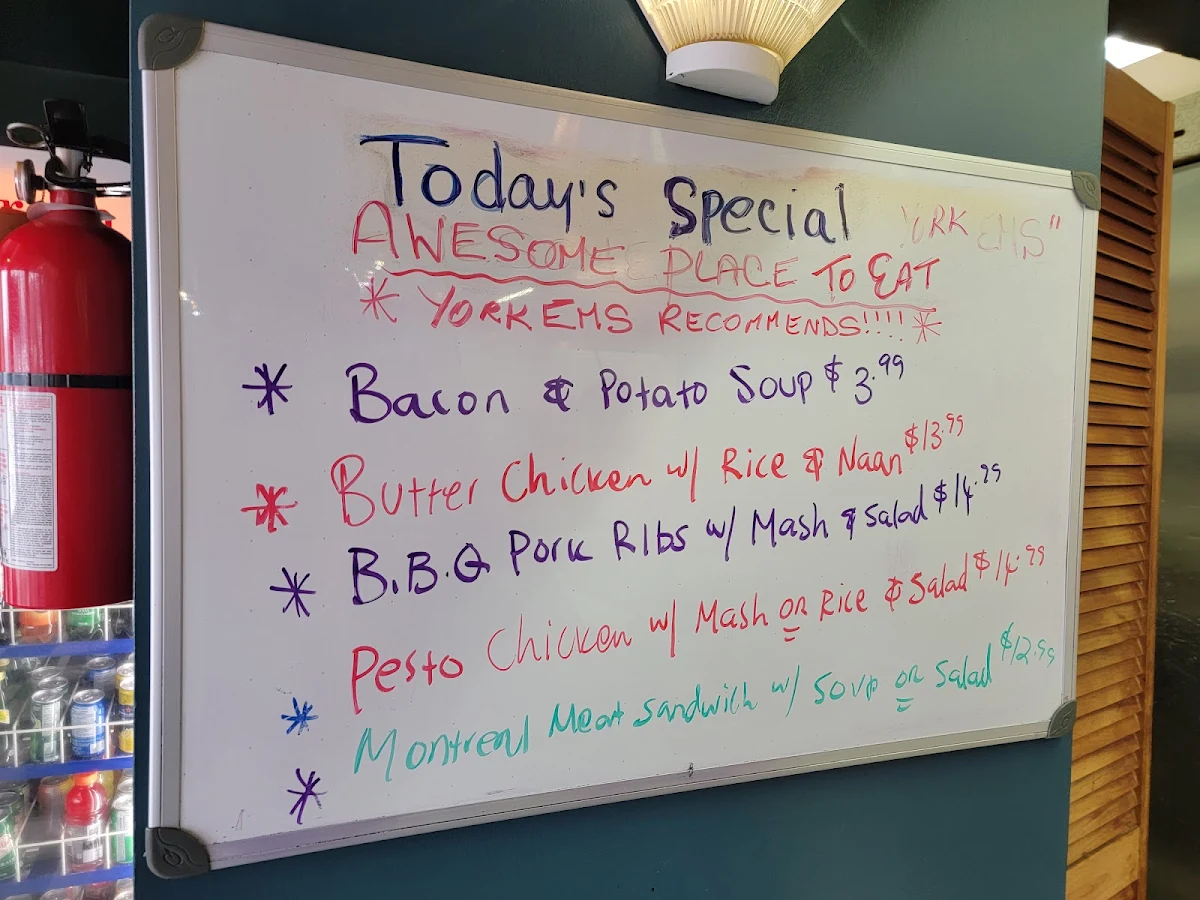 Today's Special
YORK EMS"
AWESOME PLACE TO EAT
* YORK EMS RECOMMENDS!!!! *
* Bacon & Potato Soup $3.99
* Butter Chicken w/ Rice & Naan $13.99
* B.B.Q Pork RIbs w/ Mash & Salad $14.99
* Pesto Chicken w/ Mash or Rice & Salad $14.99
* Montreal Meat Sandwich w/ Soup or Salad $12.99